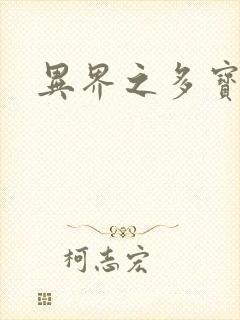 異界之多寶
柯志宏